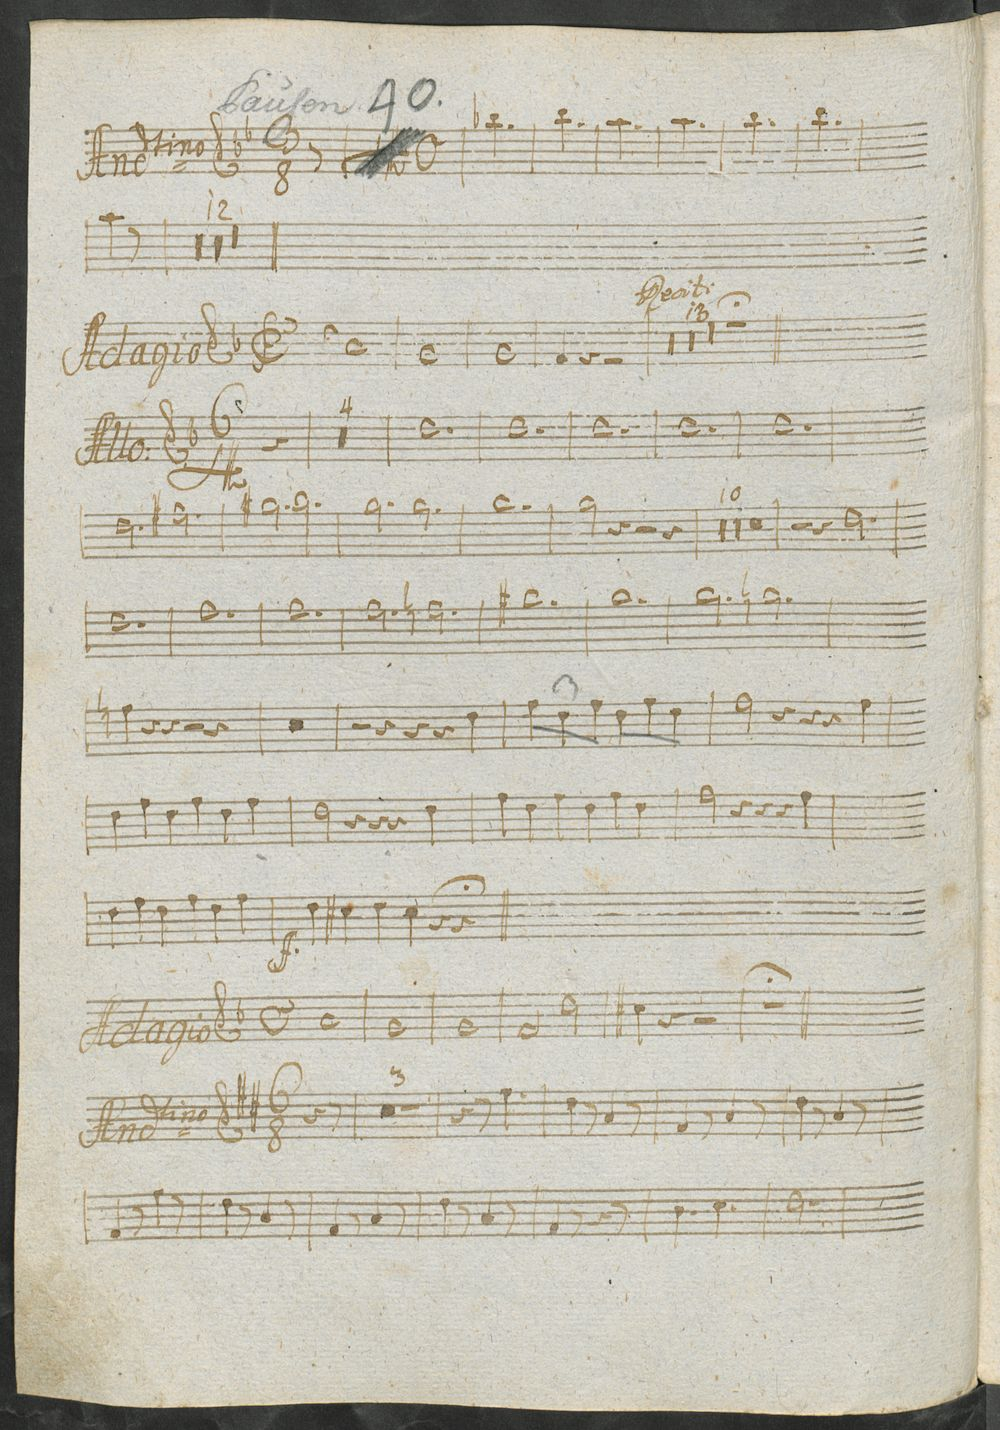 Pausen 40.
Andtino 3 8
12
Adagio Recit: 13
Allo: 6 4 4
10
3
f.
Adagio
Andtino 6 8 3